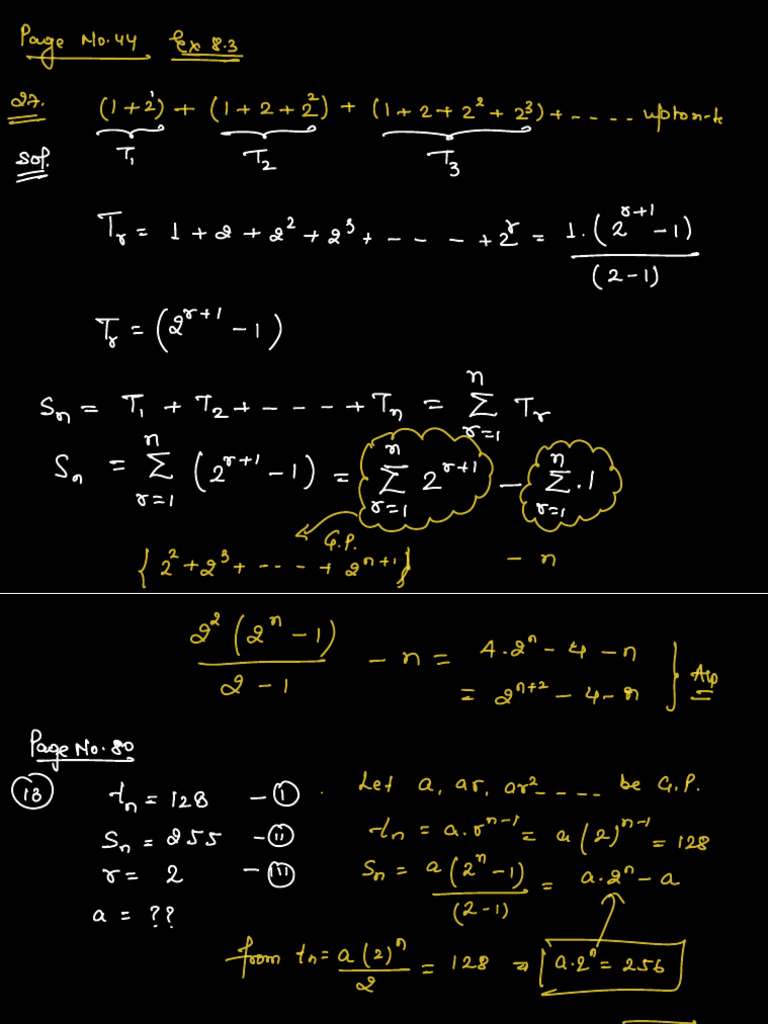 Page No.44 Ex 8.3
27. (1+2¹) + (1+2+2²) + (1+2+2²+2³) + ---- upto n-t
Sol. T₁ T₂ T₃
Tᵣ = 1+2+2²+2³+ - - - +2ʳ = 1.(2ʳ⁺¹-1) / (2-1)
Tᵣ = (2ʳ⁺¹-1)
Sₙ = T₁ + T₂ + - - - - + Tₙ = ∑ₙ r=1 Tᵣ
Sₙ = ∑ₙ r=1 (2ʳ⁺¹-1) = ∑ₙ r=1 2ʳ⁺¹ - ∑ₙ r=1 .1
G.P.
{2²+2³+ ---- + 2ⁿ⁺¹} - n
2²(2ⁿ-1) / 2-1 - n = 4.2ⁿ-4-n
= 2ⁿ⁺²-4-n } Ans
Page No.80
13 tₙ = 128 - I
Sₙ = 255 - II
r = 2 - III
a = ??
Let a, ar, ar² ---- be G.P.
tₙ = a.rⁿ⁻¹ = a(2)ⁿ⁻¹ = 128
Sₙ = a(2ⁿ-1) / (2-1) = a.2ⁿ-a
from tₙ = a(2)ⁿ / 2 = 128 ⇒ a.2ⁿ = 256